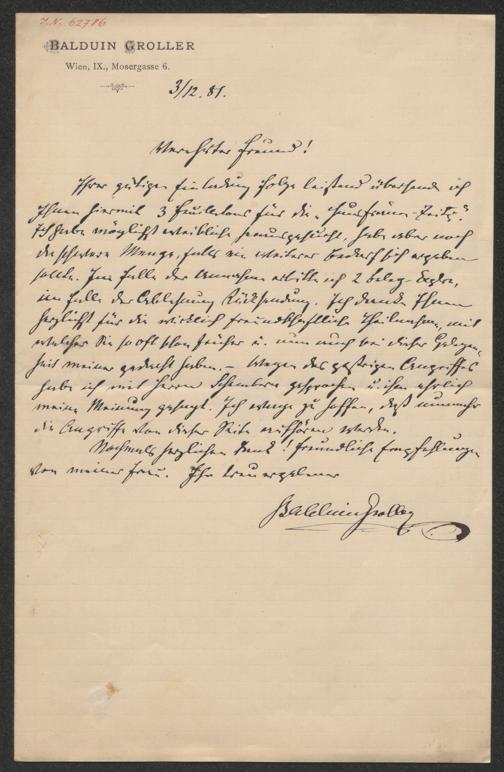 I.N. 62786
BALDUIN GROLLER
Wien, IX., Mosergasse 6.
3/12. 81.
Verehrter Freund!
Ihrer gütigen Einladung Folge leistend übersende ich
Ihnen hiermit 3 Feuilletons für die „Hausfrauen-Zeitg.“
Ich habe möglichst weibliche herausgesucht, habe aber noch
die schwere Menge, falls ein weiterer Bedarf sich ergeben
sollte. Im Falle der Annahme erbitte ich 2 Beleg-Explre,
im Falle der Ablehnung Rücksendung. Ich danke Ihnen
herzlichst für die wirklich freundschaftliche Theilnahme, mit
welcher Sie so oft schon früher u. nun auch bei dieser Gelegen-
heit meiner gedacht haben. – Wegen des gestrigen Angriffes
habe ich mit Herrn gesprochen u. ihm ehrlich
meine Meinung gesagt. Ich wage zu hoffen, daß nunmehr
die Angriffe von dieser Seite aufhören werden.
Nochmals herzlichen Dank! Freundliche Empfehlungen
von meiner Frau. Ihr treuergebener
Balduin Groller